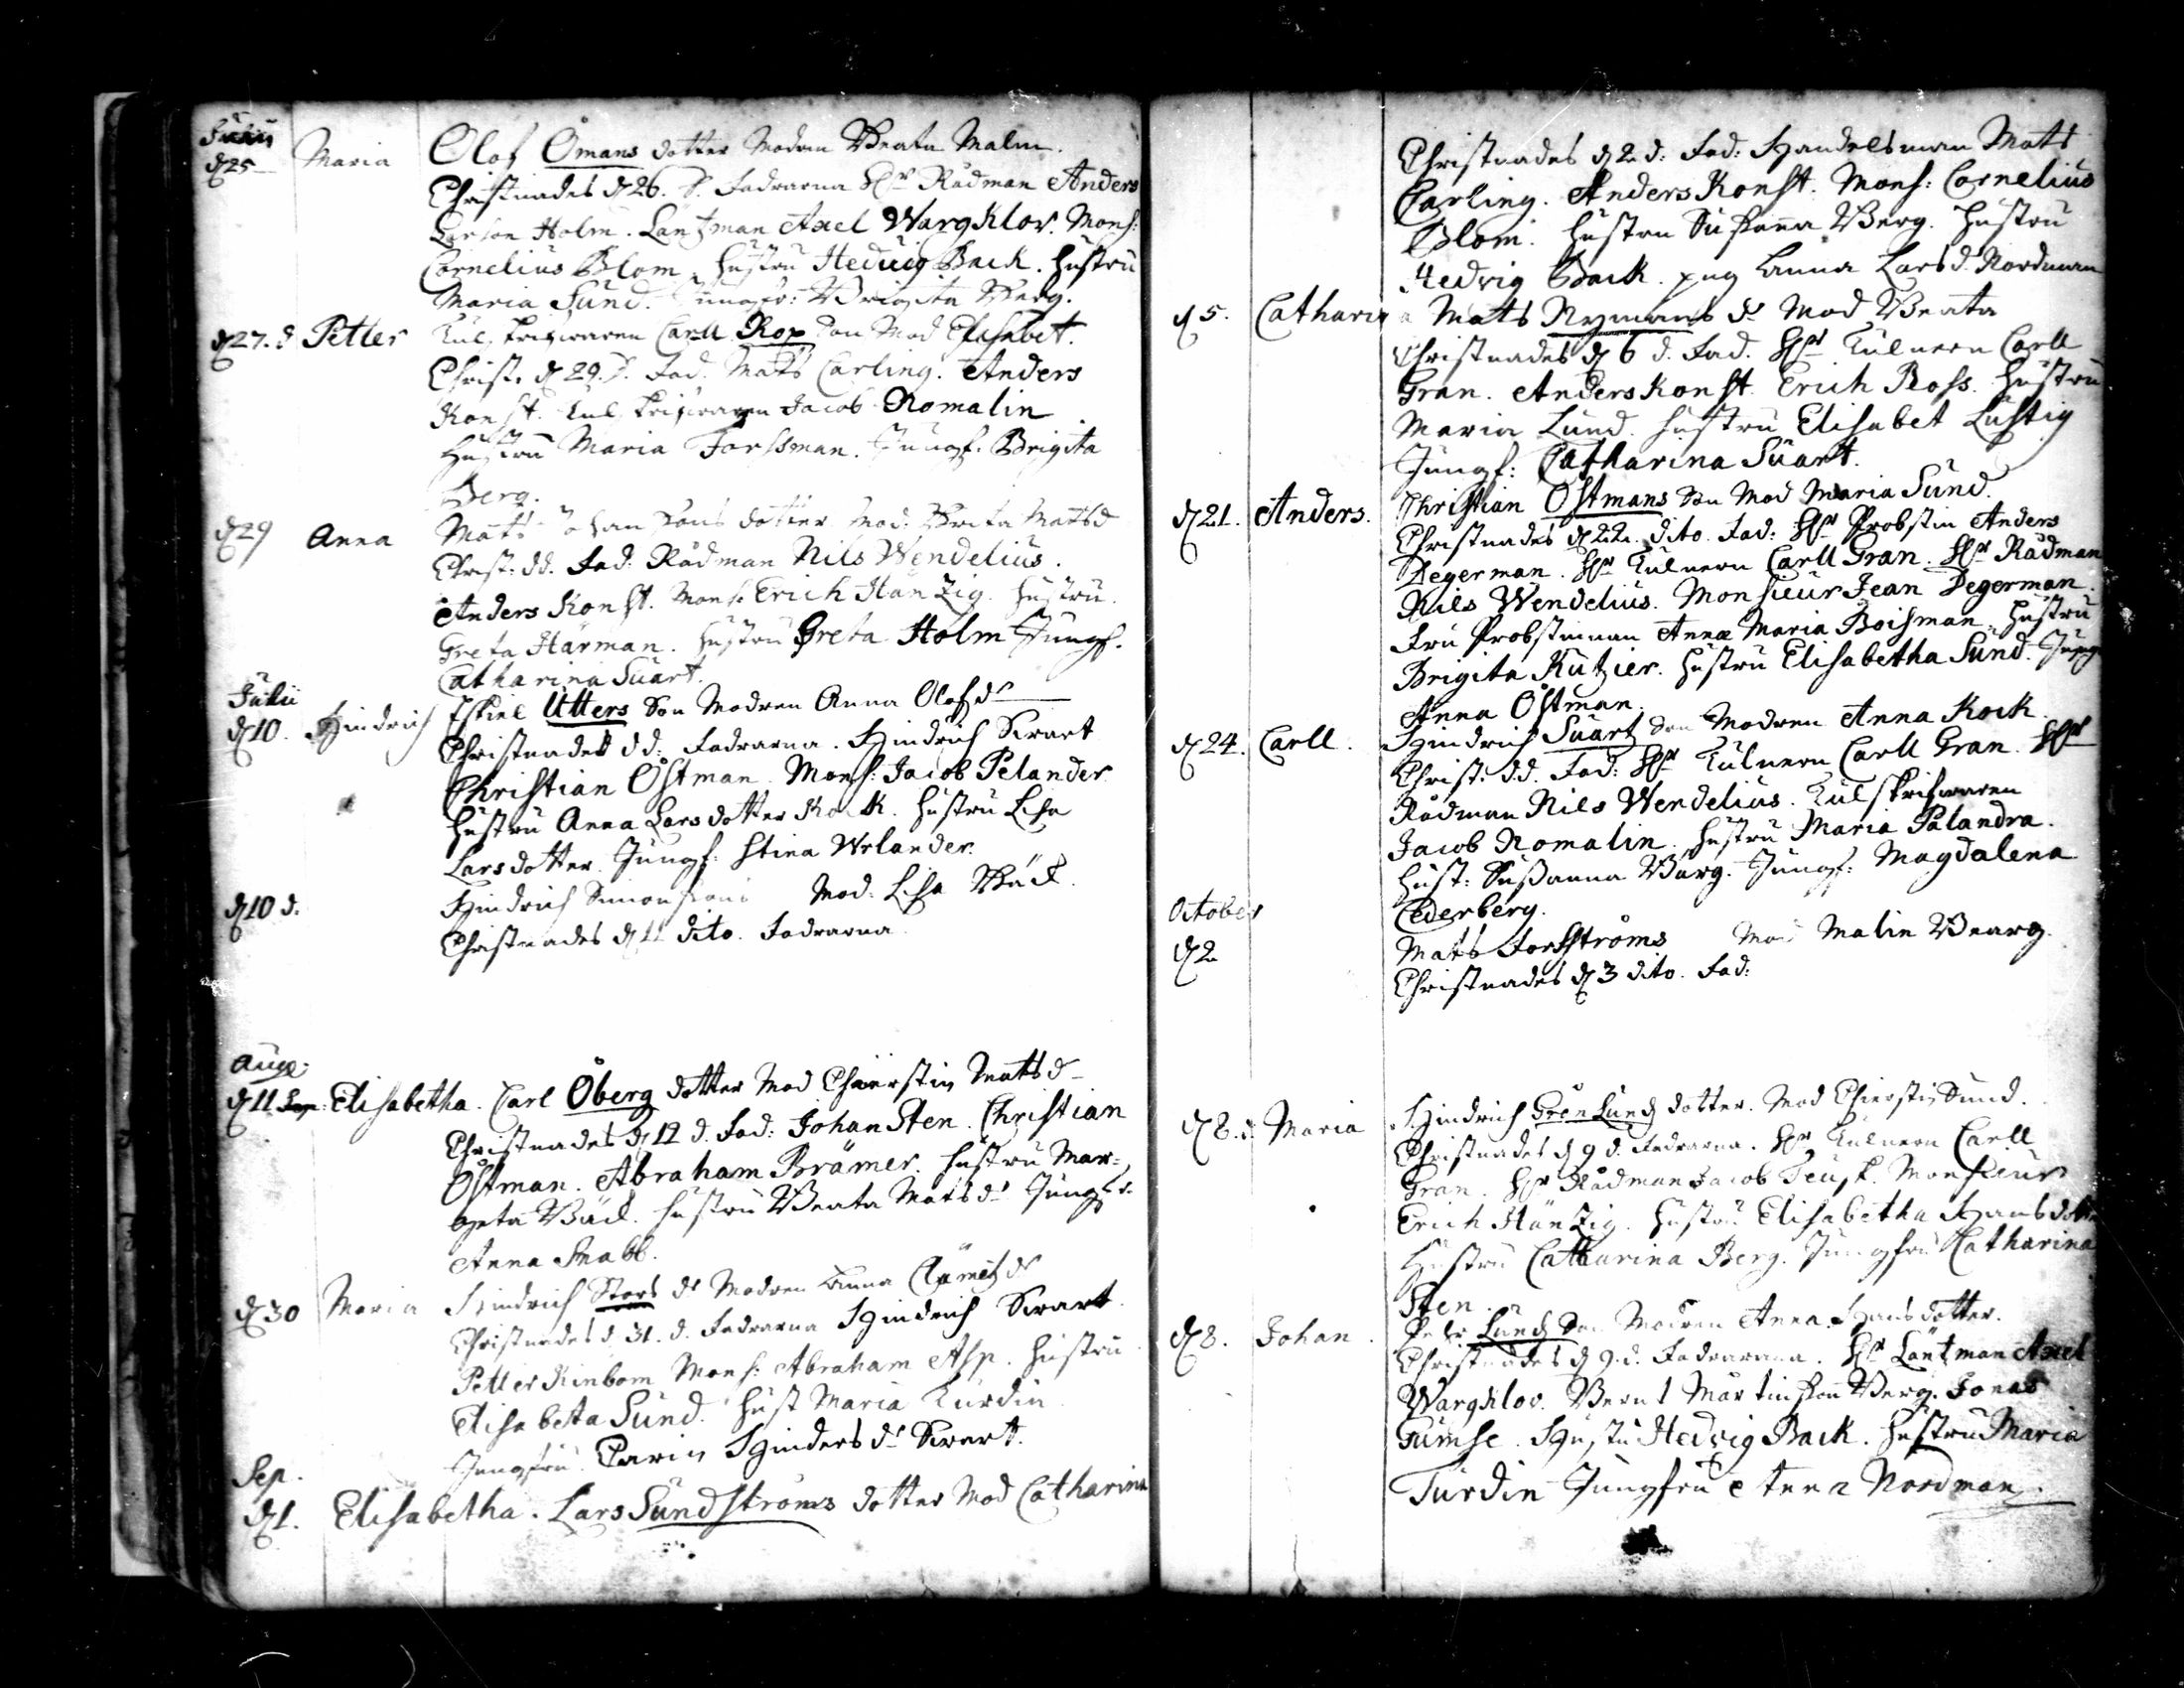 Junii
d 25 Maria Olof Ömans dotter Modren Beata Malm.
Christnades d 26. D. Fadrarna Hr Rådman Anders
Larson Holm. Lantzman Axel Wargklov. Mons:
Cornelius Blom, hustru Hedwig Back. hustru
Maria Sund. Jungfr: Brigita Berg.
d 27. d Petter Tul skrifwaren Carll Rox Son Mod Elisabet.
Christ. d 29. D. Fad. Mats Carling. Anders
Konst. Tul skrifwaren Jacob Romalin
Hustru Maria Forssman. Jungf. Brigita
Berg.
d 29 Anna Matts Johansons dotter Mod: Brita Mattsd
Christ: dd. Fad: Rådman Nils Wendelius.
Anders Konst. Mons: Erich Hänzig. hustru.
Greta Härman. hustru Greta Holm Jungf.
Catharina Suart.
Julii
d 10. Hindrich Eskiel Utters Son Modren Anna Olofdr
Christnades dd: Fadrarna. Hindrich Swart
Christian Östman. Mons: Jacob Pelander
hustru Anna Larsdotter Kock. hustru Lisa
Larsdotter. Jungf: Stina Welander.
d 10 d. Hindrich Simonsons Mod: Lisa Bäck.
Christnades d 11 dito. Fadrarna
Augs:
d 11 Elisabetha. Carl Öberg dotter Mod Chierstin Mattsd
Christnades d 12 d. Fad: Johan Sten. Christian
Östman. Abraham Brämer. hustru Mar-
geta Bäck. hustru Beata Matsdr Jungfr.
Anna Snabb.
d 30 Maria Hindrich Stors dr Modren Anna dr
Christnades d 31. d. Fadrarna Hindrich Swart.
Petter Kinbom Mons: Abraham Asp. hustru
Elisabeta Sund. hust Maria Turdin
Jungfru. Carin Hindersdr Swart.
Sep.
d 1. Elisabetha. Lars Sundströms dotter Mod Catharina
Christnades d 2 d: Fad: Handelsman Mats
Carling. Anders Konst. Mons: Cornelius
Blom. hustru Susanna Berg. hustru
Hedvig Back. pig Anna Larsd. Nordman
d 5. Catharina Matts Nymans dr Mod Beata
Christnades d 6 d. Fad. Hr Tulnern Carll
Gran. Anders Konst. Erich Ross. hustru
Maria Lund. hustru Elisabet Lustig
Jungf: Catharina Suart.
d 21. Anders. Christian Östmans Son Mod Maria Sund.
Christnades d 22. dito. Fad: Hr Probsten Anders
Degerman. Hr Tulnern Carll Gran. Hr Rådman
Nils Wendelius. Monsieur Jean Degerman.
Fru Probstinnan Anna Maria Boisman. hustru
Brigita Kutzier. hustru Elisabetha Sund. Jungf
Anna Östman.
d 24. Carll. Hindrich Suart Son Modren Anna Kock
Christ: dd. Fad: Hr Tulnern Carll Gran. Hr
Rådman Nils Wendelius. Tulskrifwaren
Jacob Romalin. hustru Maria Palandra.
hust: Susanna Barg. Jungf: Magdalena
Cederberg.
October
d 2 Mats Forsströms Mod Malin Bearg.
Christnades d 3 dito. Fad:
d 8. d. Maria Hindrich Grön Lund dotter. Mod Chierstin Sund.
Christnades d 9 d. Fadrarna. Hr Tulnern Carll
Gran. Hr Rådman Jacob Teusk. Monsieur
Erich Hänzig. hustru Elisabetha Hansdotter
Hustru Catharina Berg. Jungfru Catharina
Sten.
d 8. Johan. Peter Lund Son Modren Anna Hansdotter.
Christnades d 9. d. Fadrarna. Hr Läntzman Axel
Wargklov. Bernt Mårtinson Berg. Jonas
Gumse. Hustru Hedvig Back. hustru Maria
Turdin Jungfru Anna Nordman.